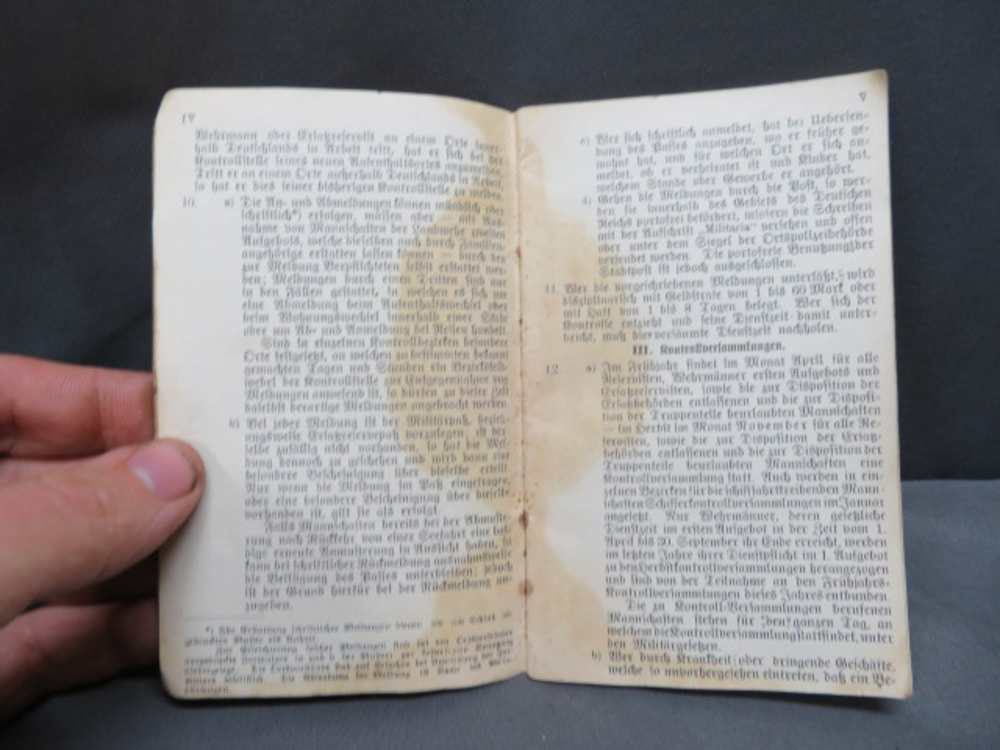 IV
Wehrmann oder Ersatzreservist an einem Orte inner-
halb Deutschlands in Arbeit tritt, hat er sich bei der
Kontrollstelle seines neuen Aufenthaltsortes anzumelden.
Tritt er an einem Orte außerhalb Deutschlands in Arbeit,
so hat er dies seiner bisherigen Kontrollstelle zu melden.
10. a) Die An- und Abmeldungen können mündlich oder
schriftlich*) erfolgen, müssen aber — mit Aus-
nahme von Mannschaften der Landwehr zweiten
Aufgebots, welche dieselben auch durch Familien-
angehörige erstatten lassen können — durch die
zur Meldung Verpflichteten selbst erstattet wer-
den; Meldungen durch einen Dritten sind nur
in den Fällen gestattet, in welchen es sich um
eine Abmeldung beim Aufenthaltswechsel oder
beim Wohnungswechsel innerhalb einer Stadt
oder um Ab- und Anmeldung bei Reisen handelt.
Sind in einzelnen Kontrollbezirken besondere
Orte festgesetzt, an welchen zu bestimmten bekannt
gemachten Tagen und Stunden ein Bezirksfeld-
webel der Kontrollstelle zur Entgegennahme von
Meldungen anwesend ist, so dürfen zu dieser Zeit
daselbst derartige Meldungen angebracht werden.
b) Bei jeder Meldung ist der Militärpaß, bezieh-
ungsweise Ersatzreservepaß vorzulegen; ist der-
selbe zufällig nicht vorhanden, so hat die Mel-
dung dennoch zu geschehen und wird dann eine
besondere Bescheinigung über dieselbe erteilt.
Nur wenn die Meldung im Paß eingetragen,
oder eine besondere Bescheinigung über dieselbe
vorhanden ist, gilt sie als erfolgt.
Falls Mannschaften bereits bei der Abmuste-
rung nach Rückkehr von einer Seefahrt eine bal-
dige erneute Anmusterung in Aussicht haben, so
kann bei schriftlicher Rückmeldung ausnahmsweise
die Beifügung des Passes unterbleiben; jedoch
ist der Grund hierfür bei der Rückmeldung an-
zugeben.
*) Die Erstattung schriftlicher Meldungen
V
c) Wer sich schriftlich anmeldet, hat bei Uebersen-
dung des Passes anzugeben, wo er früher ge-
wohnt hat, und für welchen Ort er sich an-
meldet, ob er verheiratet ist und Kinder hat,
welchem Stande oder Gewerbe er angehört.
d) Gehen die Meldungen durch die Post, so wer-
den sie innerhalb des Gebiets des Deutschen
Reichs portofrei befördert, insofern die Schreiben
mit der Aufschrift „Militaria“ versehen und offen
oder unter dem Siegel der Ortspolizeibehörde
versendet werden. Die portofreie Benutzung der
Stadtpost ist jedoch ausgeschlossen.
11. Wer die vorgeschriebenen Meldungen unterläßt, wird
disziplinarisch mit Geldstrafe von 1 bis 60 Mark oder
mit Haft von 1 bis 8 Tagen belegt. Wer sich der
Kontrolle entzieht und seine Dienstzeit damit unter-
bricht, muß die versäumte Dienstzeit nachholen.
III. Kontrollversammlungen.
12. a) Im Frühjahr findet im Monat April für alle
Reservisten, Wehrmänner ersten Aufgebots und
Ersatzreservisten, sowie die zur Disposition der
Ersatzbehörden entlassenen und die zur Disposi-
tion der Truppenteile beurlaubten Mannschaften
— im Herbst im Monat November für alle Re-
servisten, sowie die zur Disposition der Ersatz-
behörden entlassenen und die zur Disposition der
Truppenteile beurlaubten Mannschaften eine
Kontrollversammlung statt. Auch werden in ein-
zelnen Bezirken für die schiffahrttreibenden Mann-
schaften Schifferkontrollversammlungen im Januar
angesetzt. Nur Wehrmänner, deren gesetzliche
Dienstzeit im ersten Aufgebot in der Zeit vom 1.
April bis 30. September ihr Ende erreicht, werden
im letzten Jahre ihrer Dienstpflicht im 1. Aufgebot
zu den Herbstkontrollversammlungen herangezogen
und sind von der Teilnahme an den Frühjahrs-
Kontrollversammlungen dieses Jahres entbunden.
Die zu Kontroll-Versammlungen berufenen
Mannschaften stehen für den ganzen Tag, an
welchem die Kontrollversammlung stattfindet, unter
den Militärgesetzen.
b) Wer durch Krankheit oder dringende Geschäfte,
welche so unvorhergesehen eintreten, daß ein Be-